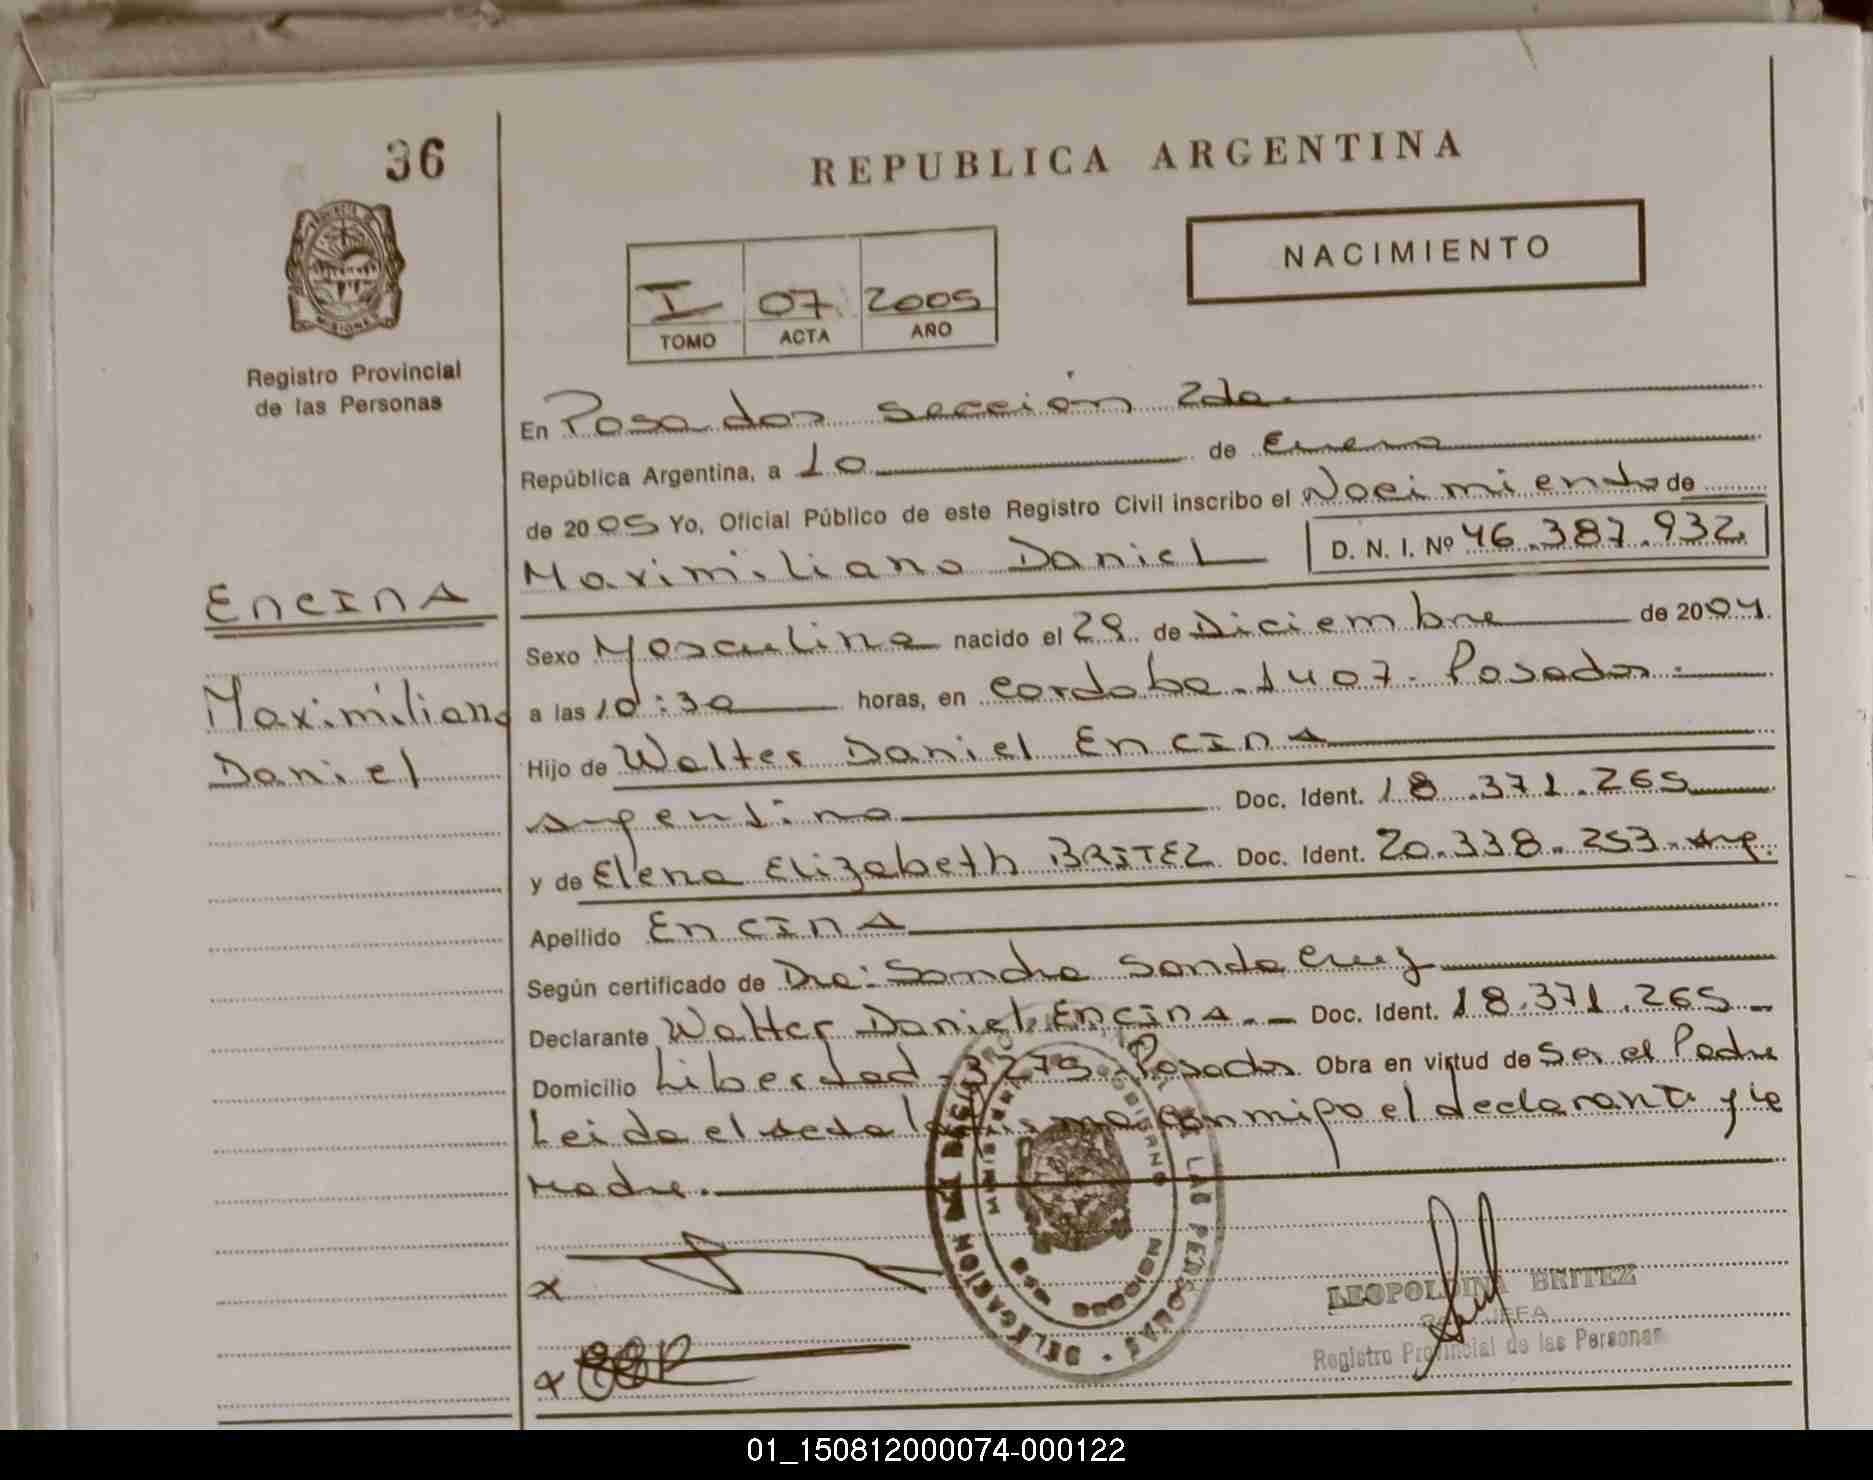 36
REPUBLICA ARGENTINA
NACIMIENTO
I 07 2005
TOMO ACTA AÑO
PROVINCIA DE
MISIONES
Registro Provincial
de las Personas
En Posadas sección 2da.
República Argentina, a 10 de Enero
de 2005 Yo, Oficial Público de este Registro Civil inscribo el Nacimiento de
Maximiliano Daniel D. N. I. Nº 46.387.932
ENCINA
Sexo Masculino nacido el 29 de Diciembre de 2004.
Maximiliano
a las 10:30 horas, en Cordoba 1407 - Posadas
Daniel
Hijo de Walter Daniel ENCINA
Argentino Doc. Ident. 18.371.265
y de Elena Elizabeth BRITEZ Doc. Ident. 20.338.253 - Arg.
Apellido ENCINA
Según certificado de Dra: Sandra Santa Cruz
Declarante Walter Daniel ENCINA. Doc. Ident. 18.371.265
Domicilio Libertad - 3275 - Posadas Obra en virtud de Ser el Padre
Leida el acta la firma conmigo el declarante y la
Madre.
DELEGACION DEL REGISTRO DE LAS PERSONAS
MINISTERIO GOBIERNO
MISIONES
x
x
LEOPOLDINA BRITEZ
JEFA
Registro Provincial de las Personas
01_150812000074-000122